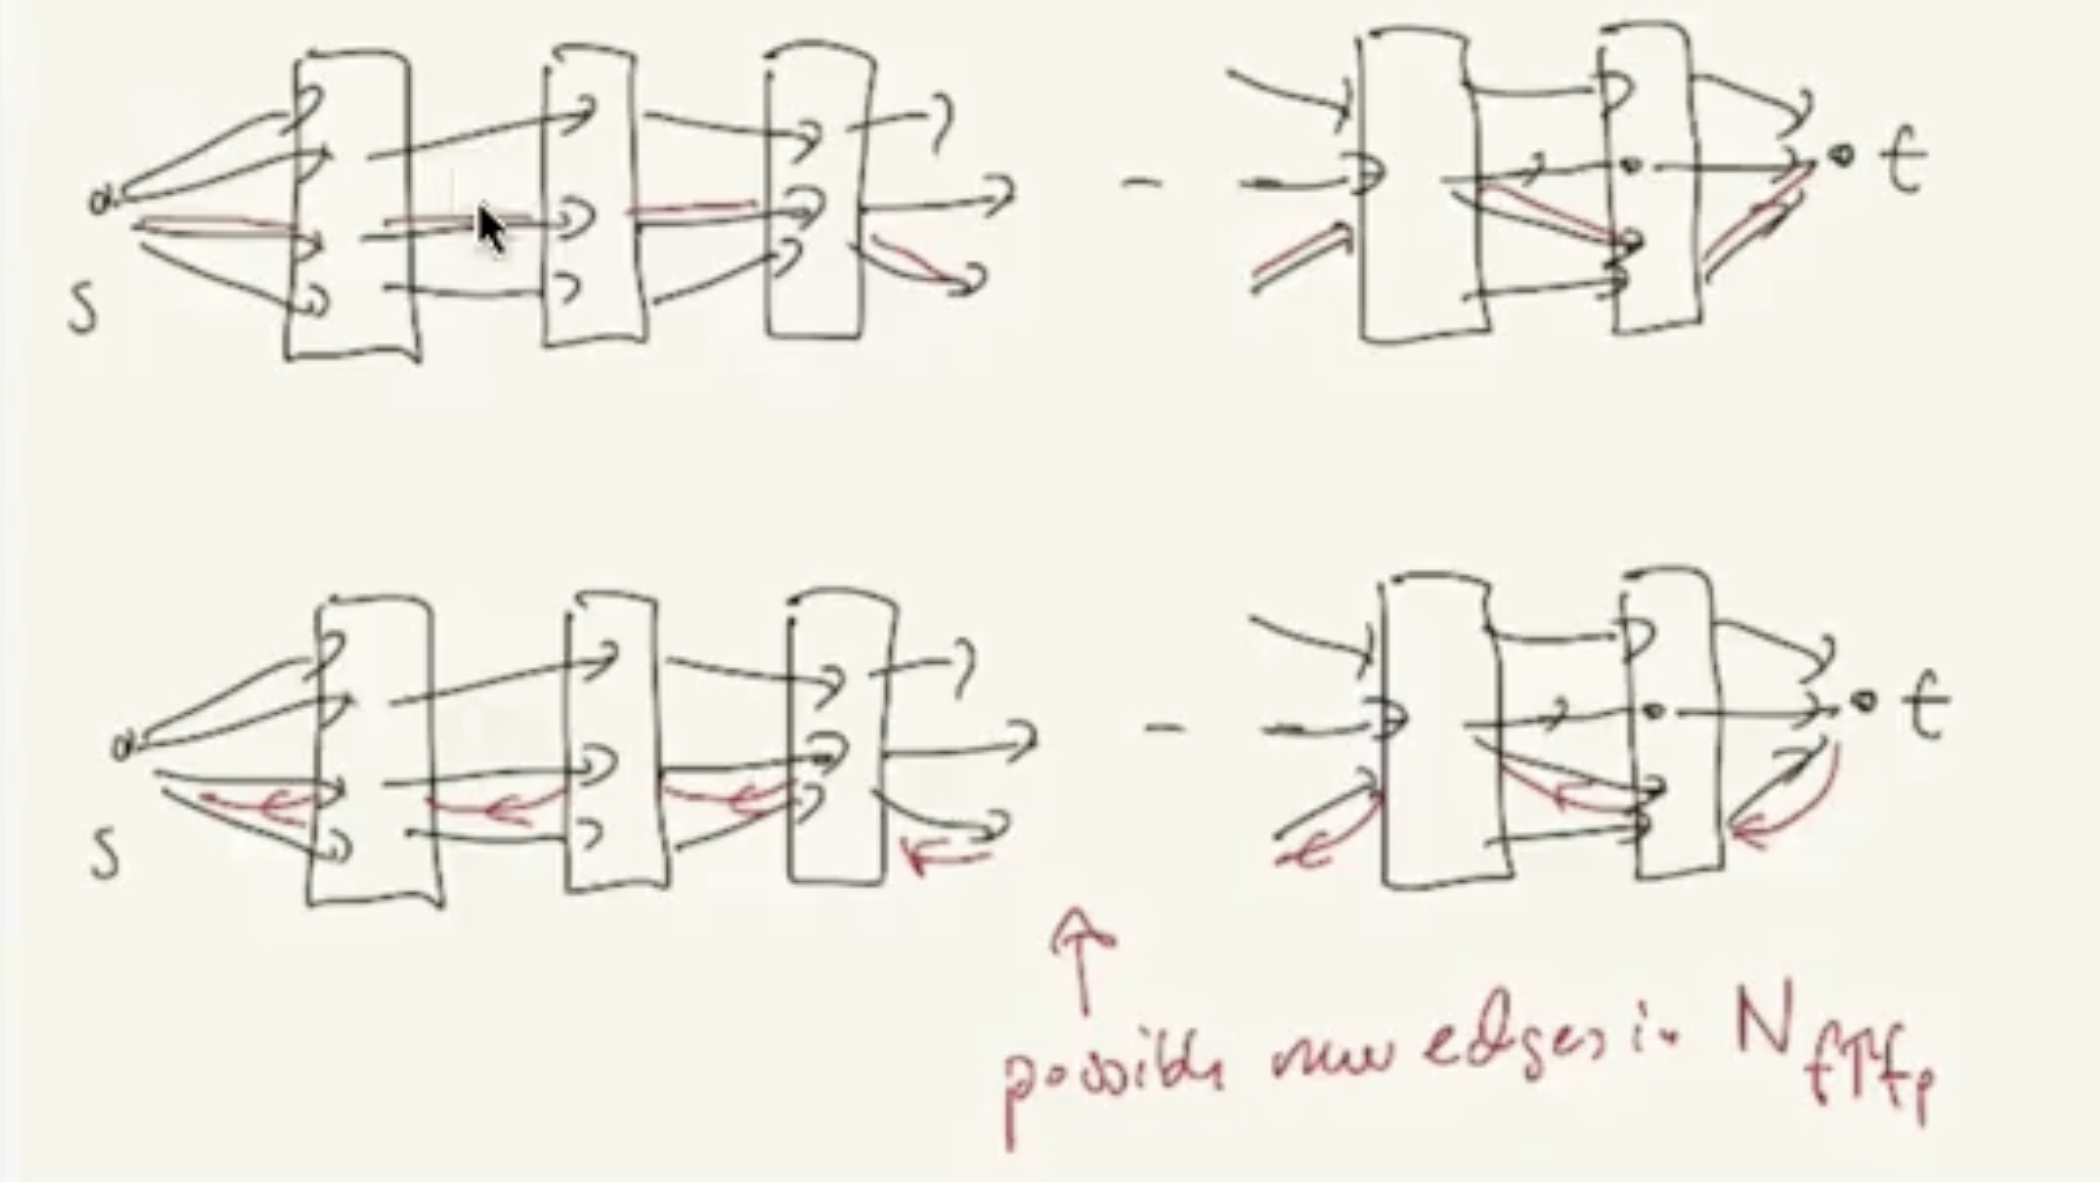 t
s
t
s
possible new edges in N f↑fp